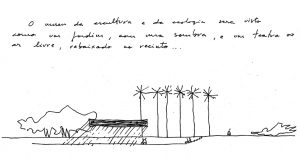 O museu da escultura e da ecologia será visto
como um jardim, com uma sombra, e um teatro ao
ar livre, rebaixado no recinto...